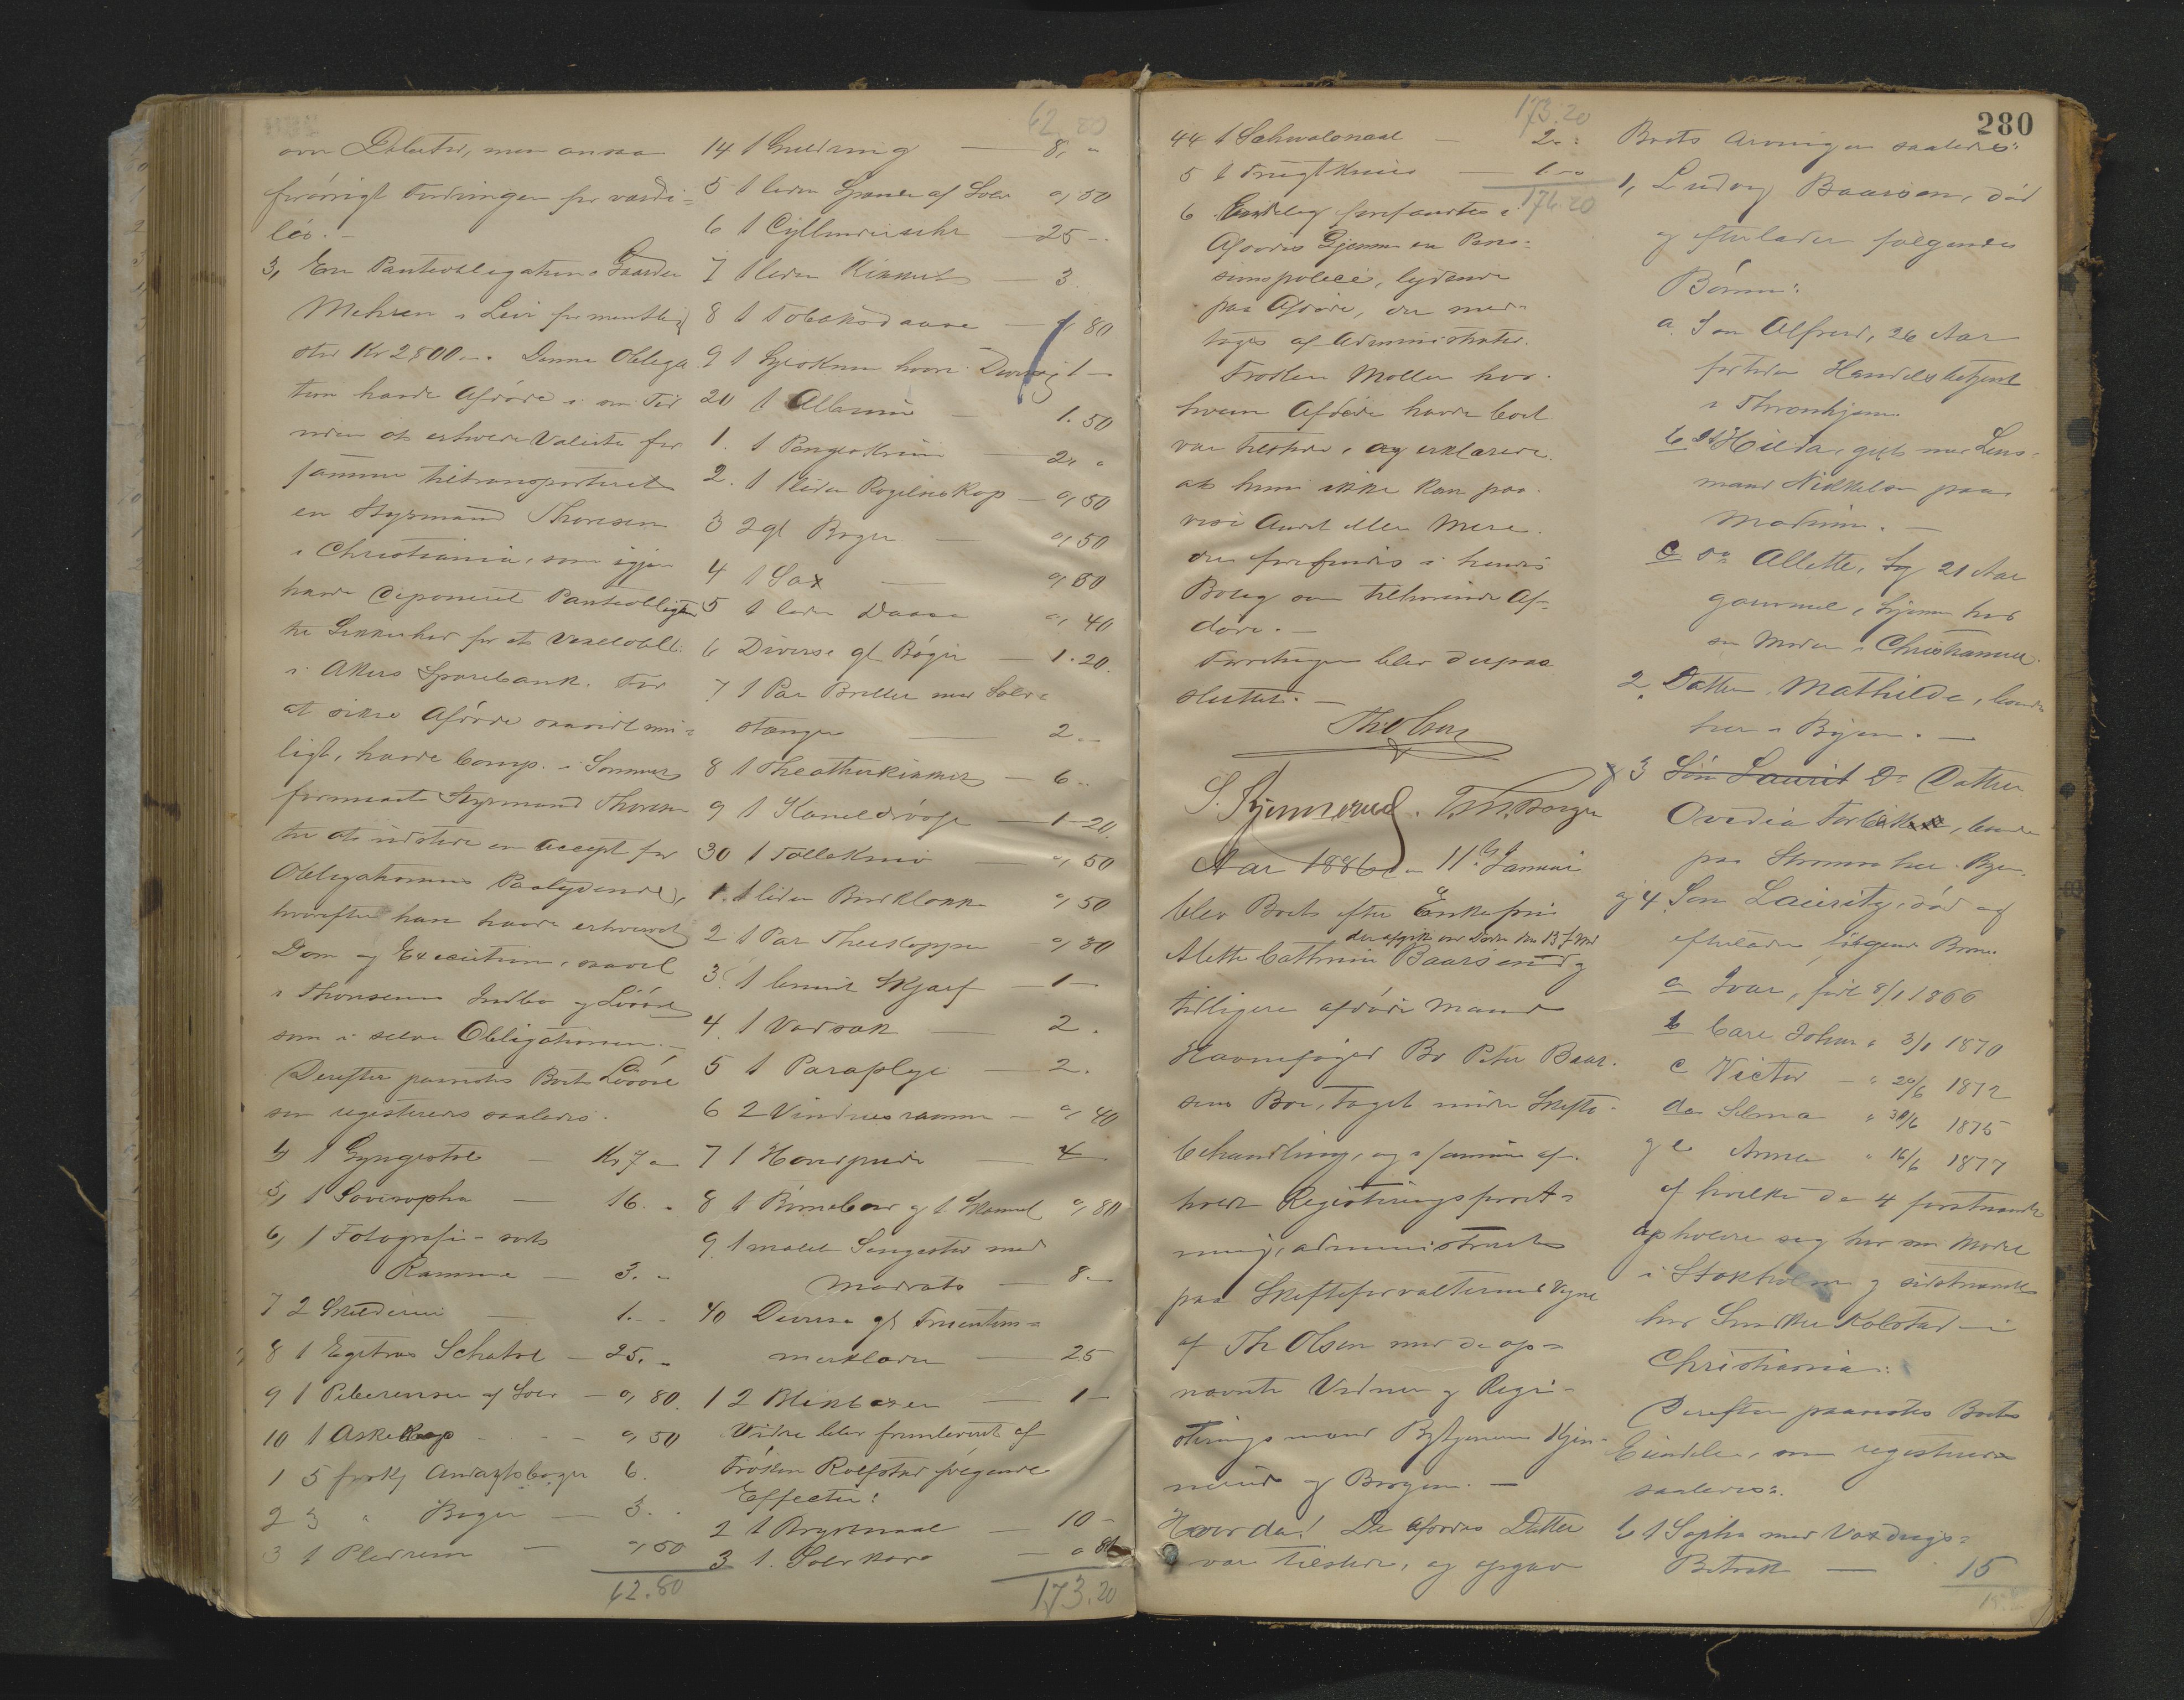 over Debitor, men ansaa
forøvrigt Fordringen for værdi=
løs.-
3, En Panteobligation i Gaarden
Mehren i Lier formentlig
stor Kr 2800-. Denne Obliga
tion havde Afdøde i sin Tid
uden at erhverve Valuta for
samme tiltransporteret
en Styrmand Thoresen
i Christiania, som igjen
havde deponeret Panteobligtn
til Sikkerhed for et Vexelobl.
i Akers Sparebank. For
at sikre Afdøde saavidt mu=
ligt, havde Comp. i Sommer
formaaet Styrmand Thoresen
til at udstede en Accept for
Obligationens Paalydende,
hvorefter han havde erhvervet
Dom og Execution, saavel
i Thoresens Indbo og Løsøre
som i selve Obligationen.-
Derefter paavistes Boets Løsøre
som registreredes saaledes.
4, 1 Gyngestol - Kr 7 -
5, 1 Sovesopha - 16. -
6, 1 Fotografi - sort
Ramme - 3. -
7 2 Skilderier - 1. -
8 1 Egetræs Schatol - 25. -
9 1 Piberenser af Sølv - ", 80.
10 1 Askekop - - ", 50
1 5 forskj Andagtsbøger 6.
2 3 " Bøger - 3. .
3 1 Pledrem - ", 50
62.80
62.80
14 1 Guldring - 8, "
5 1 liden Spænde af Sølv ", 50
6 1 Cylinderuhr - 25 -
7 1 liden Kikkert - 3
8 1 Tobaksdaase - ", 80
9 1 1 -
20 1 Album - 1.50
1. 1 Pengeskrin - 2, "
2. 1 liden - ", 50
3 2 gl Bøger - ", 50
4 1 Sax - ", 50
5 1 liden Daase ", 40
6 Diverse gl Bøger - 1.20.
7 1 Par Briller med Sølv=
stænger - 2. -
8 1 Theatherkikkert - 6 -
9 1 - 1 - 20
30 1 Tollekniv - ", 50
1. 1 liden Bordklokke ", 50
2 1 Par Theekopper - ", 80
3 1 Skjærf - 1 -
4. 1 Vadsæk - 2 .
5 1 Paraplye - 2.
6 2 Vinduesrammer - ", 40
7 1 Hovedpude - 4
8 1 Børnebord og 1 Skammel ", 80
9. 1 malet Sengested med
Madrats - 8 -
40 Diverse gl Fruentim=
merklæder - 25
1 2 - 1 -
Videre blev fremleveret af
Frøken Rolfstad følgende
Effecter:
2 1 Brystnaal - 10 -
3 1. - " 80
173.20
173.20
44 1 Schwalsnaal - 2. :
5 1 Frugtkniv - 1 - "
176.20
6 Endelig forefandtes i
Afdødes Gjemme en Pen=
sionspolice, lydende
paa Afdøde, der med=
toges af Administrator.
Frøken Møller hos
hvem Afdøde havde boet
var tilstede, og erklærede
at hun ikke kan paa
vise Andet eller Mere
der forefindes i hendes
Bolig som tilhørende Af=
døde.-
Forretningen blev derpaa
sluttet.-
Th Olsen
S. Kjennerud. T. M. Borgen
Aar 1886 den 11te Januar
blev Boets efter Enkefru
der afgik ved Døden den 13 f Md
Alette Cathrine Baarsen og
tidligere afdøde Mand
Havnefoged Bo Peter Baar=
sens Bo, taget under Skifte=
behandling, og i samme af=
holdt Registreringsforret=
ning, administreret
paa Skifteforvalterens Vegne
af Th Olsen med de op=
nævnte Vidner og Regi=
streringsmænd Kjen=
nerud og Borgen. -
Hvorda! De afdødes Datter
var tilstede, og opgav
280
Boets Arvinger saaledes:
1, Ludvig Baarsen, død
og efterlader følgende
Børn:
a. Søn Alfred, 26 Aar
fortiden Handelsbetjent
i Thronhjem
b Dr Hilda, gift med Lens=
mand Nikkelsen paa
Modum. -
c do Allette, 21 Aar
gammel, hjemme hos
sin Moder i Christiania.
2. Datter Mathilde, boende
her i Byen. -
3 Søn Laurit Dr Datter
Ovedia, boende
paa Strømsø her i Byen.
og 4 Søn Lauritz, død og
efterlader følgende Børn:
a Ivar, født 8/1 1866
b Carl Johan " 3/1 1870
c Victor - " 20/6 1872
d Selma " 30/6 1875
og e Anna " 16/6 1877
af hvilke de 4 førstnævnte
opholder sig hos sin Moder
i Stokholm og sidstnævnte
hos Snedker Kolstad i
Christiania:
Derefter paavistes Boets
Eiendele, som registreredes
saaledes:
1 Sopha med Voxdugs=
Betræk - 15